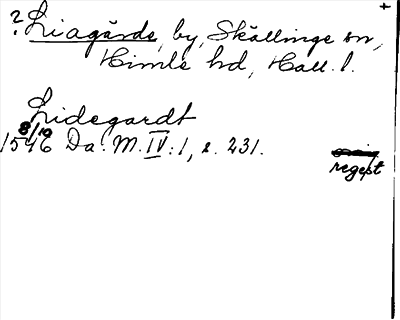 +
? Liagärde, by, Skällinge sn,
Himle hd, Hall. l.
Lidegardt
8/10
1546 Da. M. IV:1, s. 231.
regept